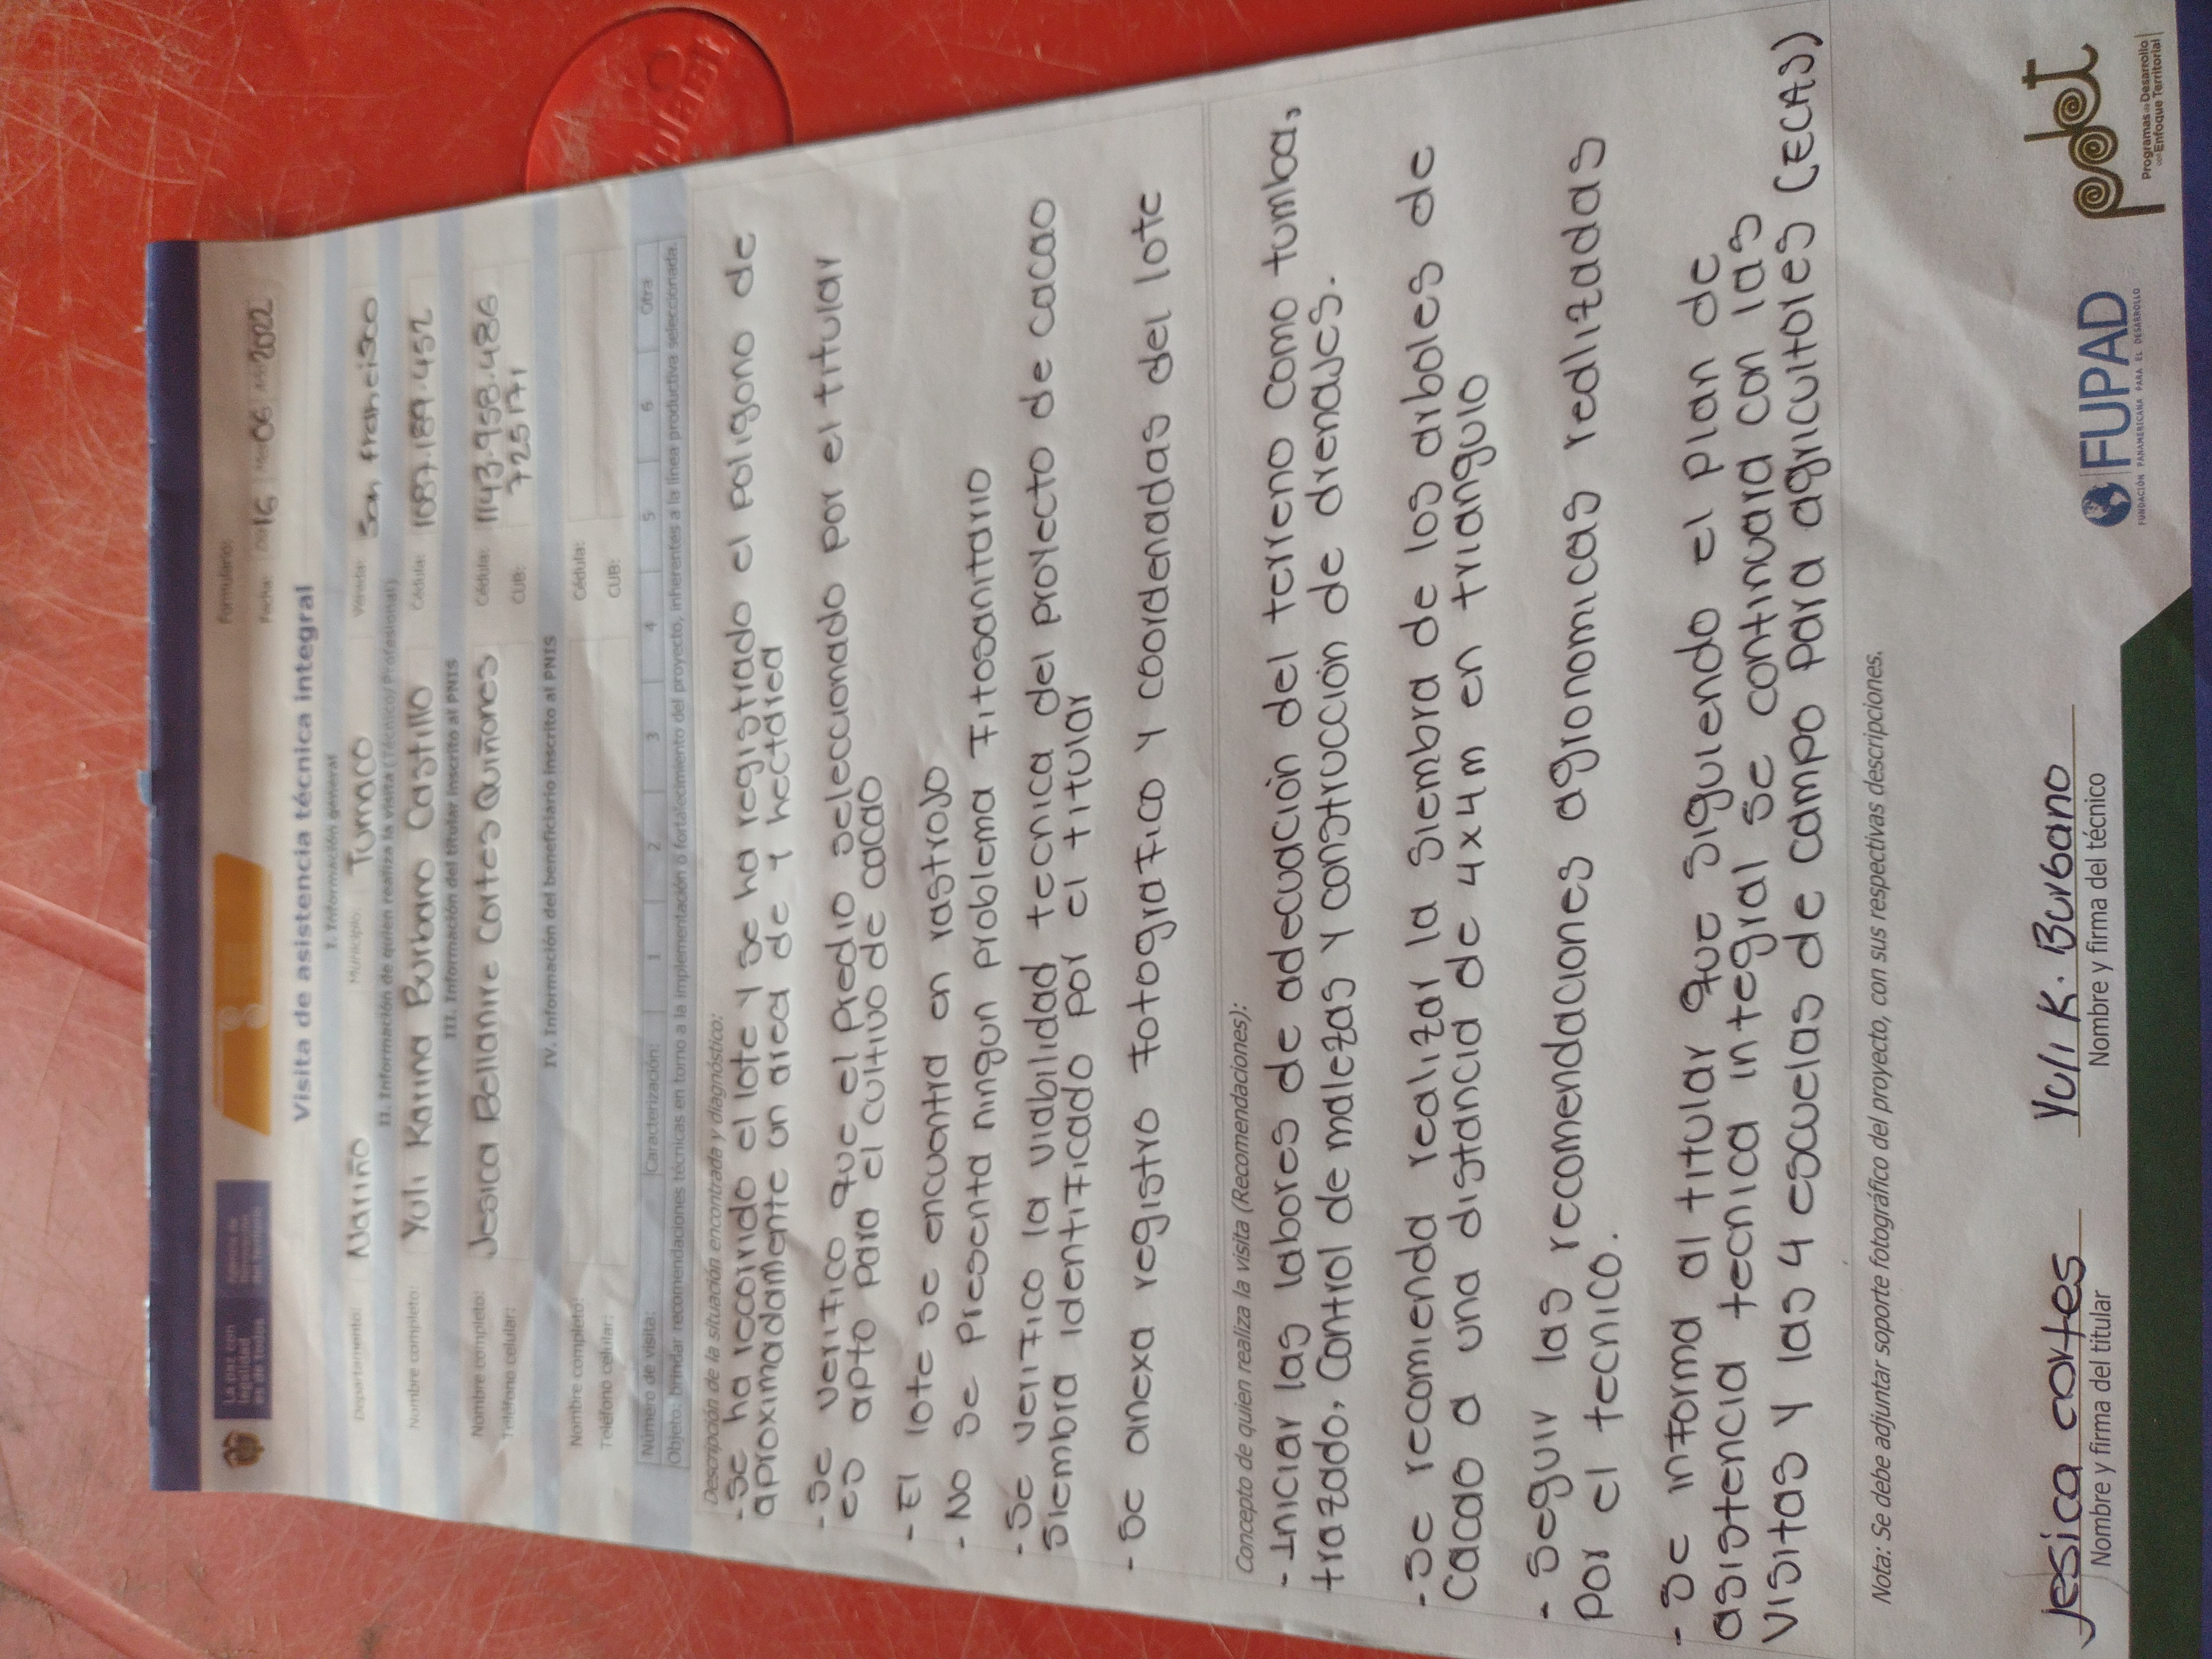 La paz con
legalidad
es de todos
Formulario:
Fecha: 16 06 2022
Visita de asistencia técnica integral
I. Información general
Departamento: Nariño Municipio: Tumaco Vereda: San francisco
II. Información de quien realiza la visita (Técnico/Profesional)
Nombre completo: Yuli Karina Burbano Castillo Cédula: 1087.189.452
III. Información del titular inscrito al PNIS
Nombre completo: Jesica Bellanire Cortes Quiñones Cédula: 1143.958.486
Teléfono celular: CUB: 725171
IV. Información del beneficiario inscrito al PNIS
Nombre completo: Cédula:
Teléfono celular: CUB:
Número de visita: Caracterización: 1 2 3 4 5 6 Otra
Objeto: brindar recomendaciones técnicas en torno a la implementación o fortalecimiento del proyecto, inherentes a la línea productiva seleccionada.
Descripción de la situación encontrada y diagnóstico:
- Se ha recorrido el lote y se ha registrado el poligono de
aproximadamente un area de 1 hectarea
- Se verifico que el predio seleccionado por el titular
es apto para el cultivo de cacao
- El lote se encuentra en rastrojo
- No se presenta ningun problema fitosanitario
- Se verifico la viabilidad tecnica del proyecto de cacao
siembra identificado por el titular
- Se anexa registro fotografico y coordenadas del lote
Concepto de quien realiza la visita (Recomendaciones):
- Iniciar las labores de adecuación del terreno como tumba,
trazado, Control de malezas y construcción de drenajes.
- Se recomienda realizar la siembra de los arboles de
Cacao a una distancia de 4x4m en triangulo
- Seguir las recomendaciones agronomicas realizadas
por el tecnico.
- Se informa al titular que siguiendo el plan de
asistencia tecnica integral se continuara con las
visitas y las 4 escuelas de campo para agricultores (ECAS)
Nota: Se debe adjuntar soporte fotográfico del proyecto, con sus respectivas descripciones.
Jesica cortes Yuli K. Burbano
Nombre y firma del titular Nombre y firma del técnico
FUPAD
FUNDACIÓN PANAMERICANA PARA EL DESARROLLO
pdet
Programas de Desarrollo
con Enfoque Territorial